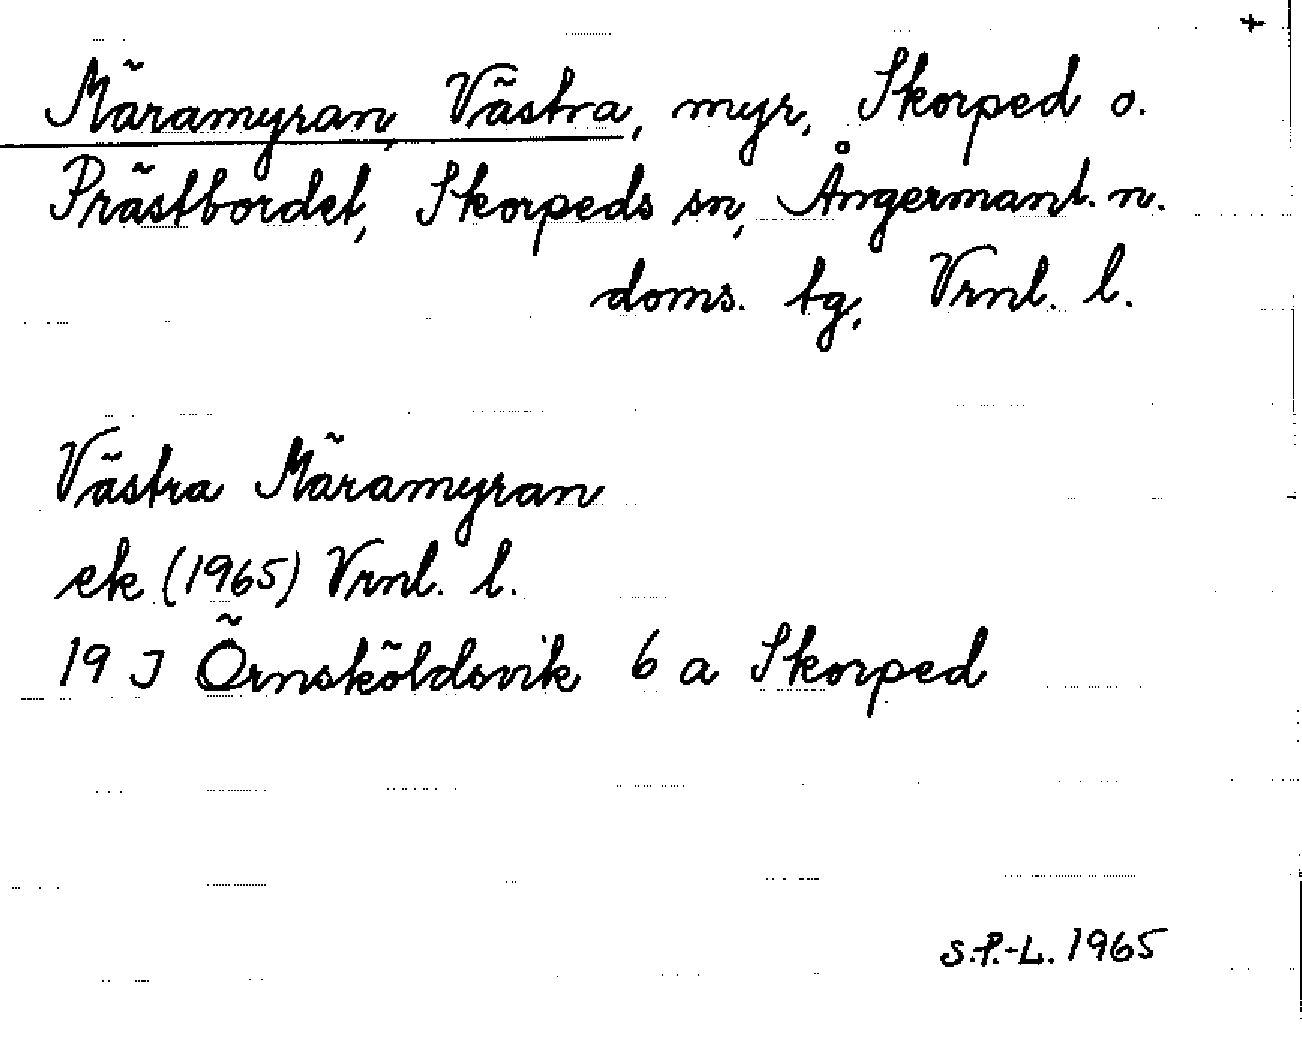 +
Märamyran, Västra, myr, Skorped o.
Prästbordet, Skorpeds sn, Ångermanl. n.
doms. tg, Vrnl. l.
Västra Märamyran
ek (1965) Vrnl. l.
19 J Örnsköldsvik 6 a Skorped
S.P.-L. 1965